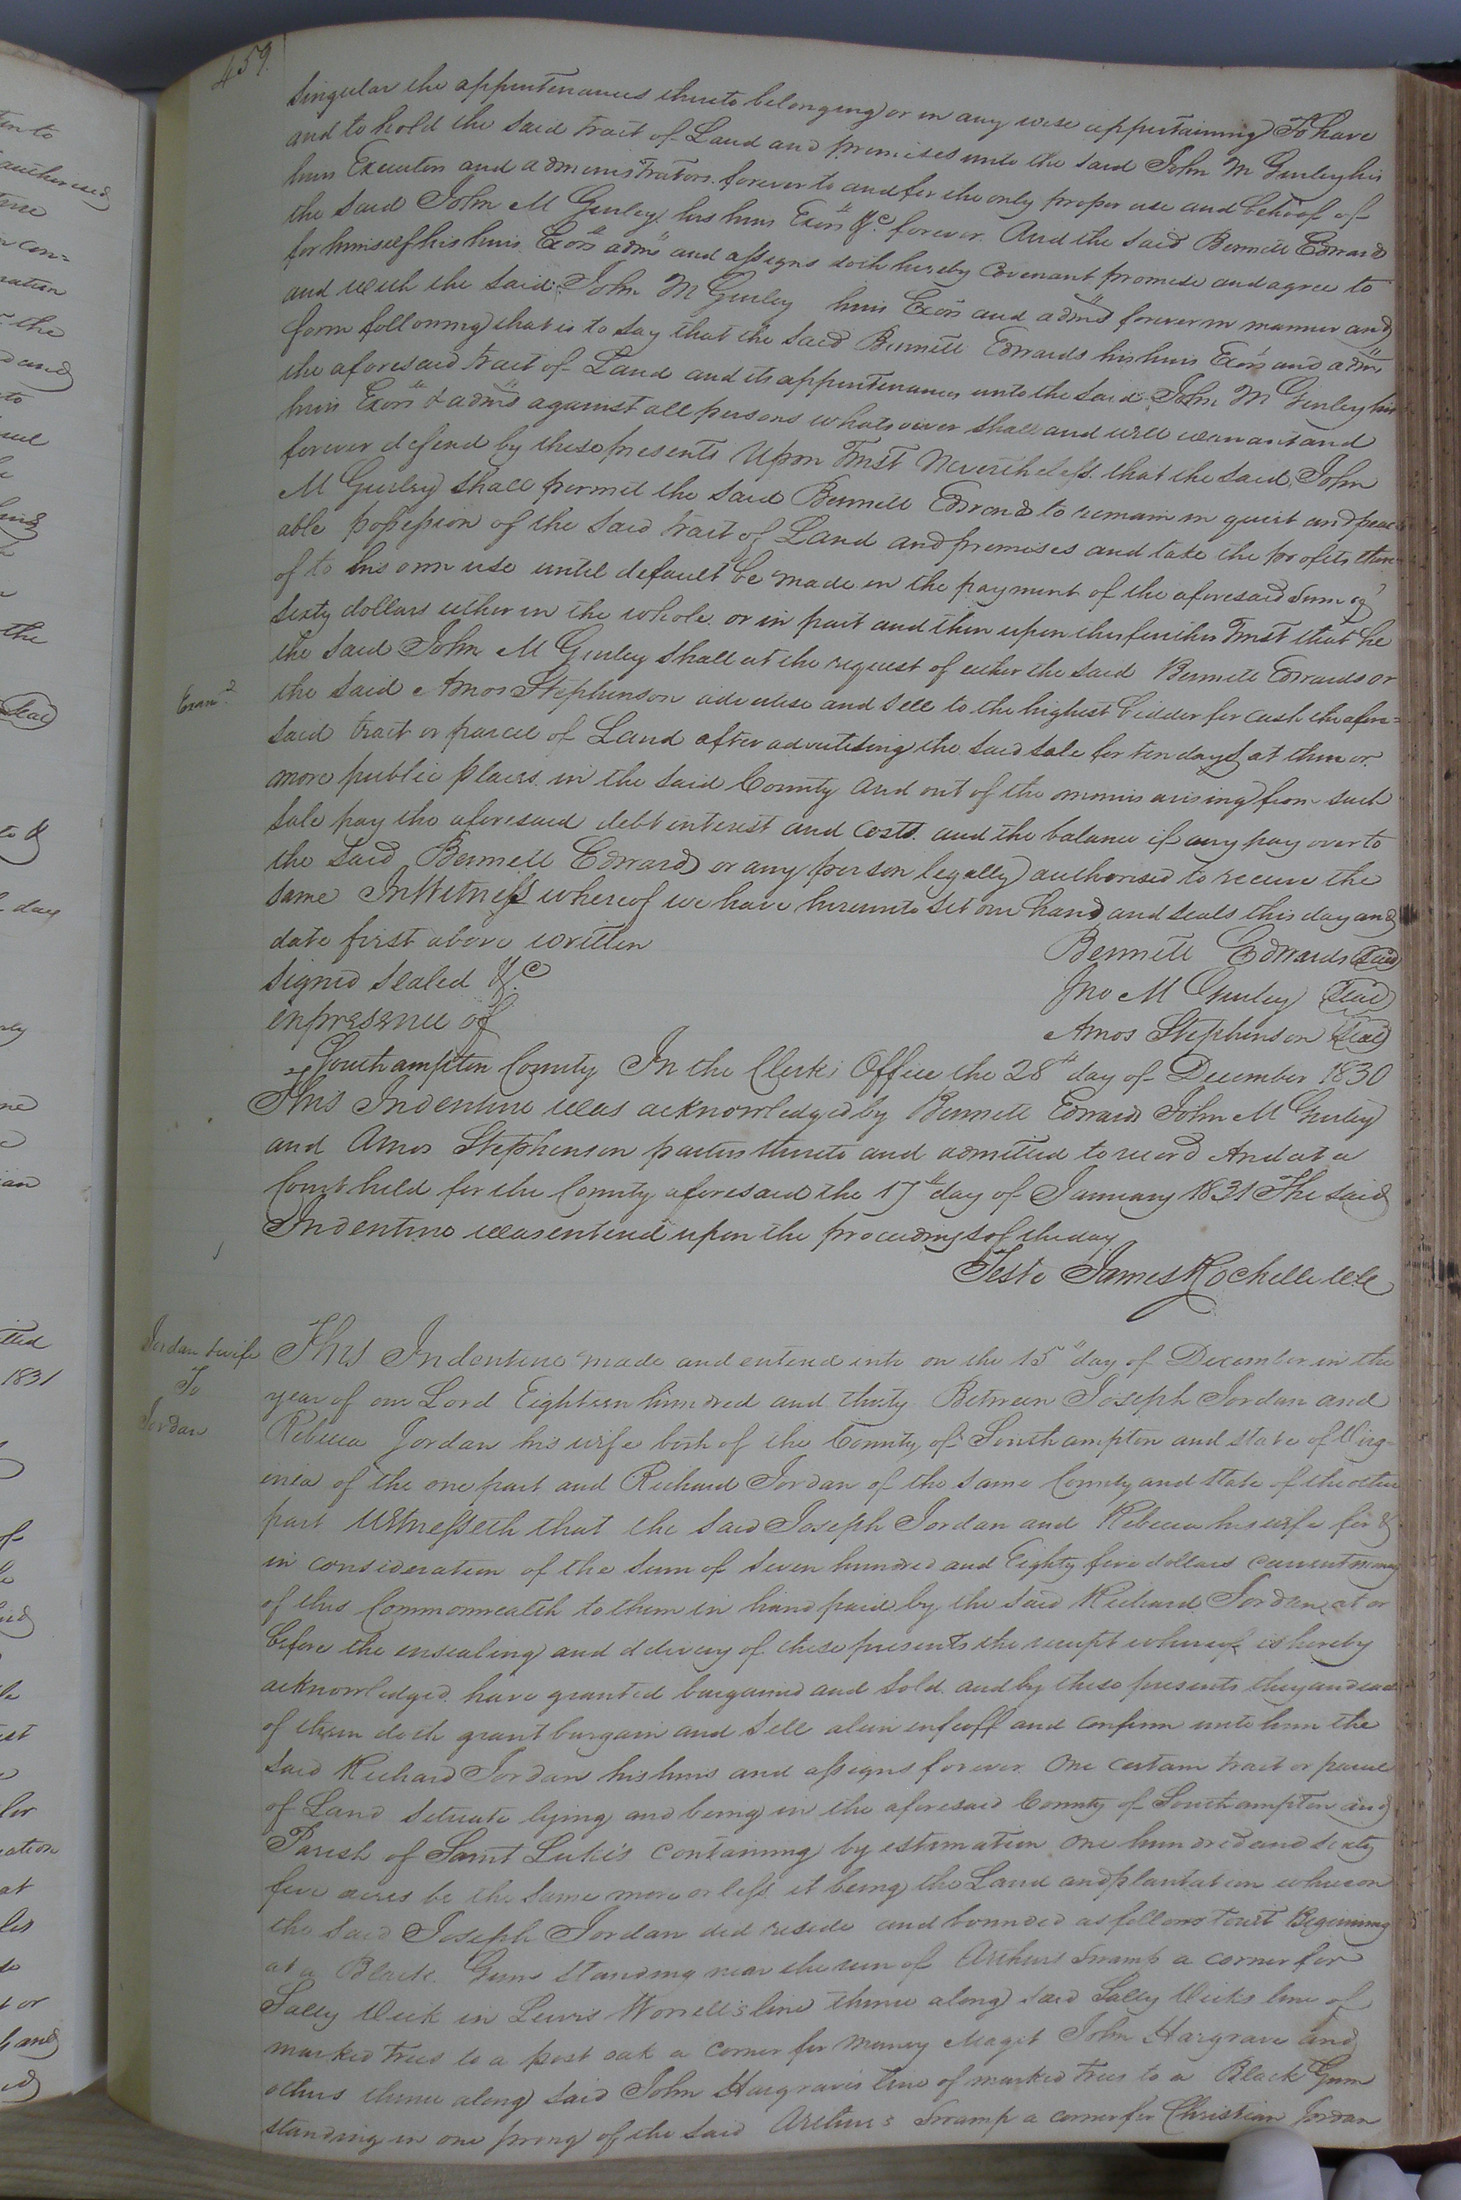 459
Singular the appurtenances thereto belonging or in any wise appertaining To have
and to hold the said tract of Land and premises unto the said John M Gurley his
heirs Executors and administrators forever to and for the only proper use and behoof of
the said John M Gurley his heirs Exors &c forever. And the said Bennett Edwards
for himself his heirs Exors adms and assigns doth hereby Covenant promise and agree to
and with the said John M Gurley heirs Exors and adms forever in manner and
form following that is to say that the said Bennett Edwards his heirs Exors and adms
the aforesaid tract of Land and its appurtenances unto the said John M Gurley his
heirs Exors & adms against all persons whatsoever shall and will warrant and
forever defend by these presents Upon Trust Nevertheless that the said John
M Gurley shall permit the said Bennett Edwards to remain in quiet and peac
able possession of the said tract of Land and premises and take the profits there
of to his own use until default be made in the payment of the aforesaid Sum of
Sixty dollars either in the whole or in part and then upon this further Trust that he
the said John M Gurley shall at the request of either the said Bennett Edwards or
Examd.
the said Amos Stephenson advertise and sell to the highest bidder for cash the afore=
said tract or parcel of Land after advertising the said sale for ten days at three or
more public places in the said County and out of the monies arising from such
sale pay the aforesaid debt interest and costs and the balance if any pay over to
the said Bennett Edwards or any person legally authorised to receive the
same In Witness whereof we have hereunto set our hand and seals this day and
date first above written
Bennett Edwards Seal
signed sealed &c
Jno M Gurley Seal
in presence of
Amos Stephenson Seal
Southampton County In the Clerks Office the 28th day of December 1830
This Indenture was acknowledged by Bennett Edwards John M Gurley
and Amos Stephenson parties thereto and admitted to record And at a
Court held for the County aforesaid the 17th day of January 1831 The said
Indenture was entered upon the proceedings of the day
Teste James Rochelle
Jordan & wife
To
Jordan
This Indenture made and entered into on the 15th day of December in the
year of our Lord Eighteen hundred and thirty Between Joseph Jordan and
Rebecca Jordan his wife both of the County of Southampton and state of Virg=
inia of the one part and Richard Jordan of the same County and state of the other
part Witnesseth that the said Joseph Jordan and Rebecca his wife for &
in consideration of the sum of Seven hundred and Eighty five dollars current money
of this Commonwealth to them in hand paid by the said Richard Jordan at or
before the ensealing and delivery of these presents the receipt whereof is hereby
acknowledged have granted bargained and sold and by these presents they and each
of them doth grant bargain and sell alien enfeoff and confirm unto him the
said Richard Jordan his heirs and assigns forever One certain tract or parcel
of Land situate lying and being in the aforesaid County of Southampton and
Parish of Saint Lukes containing by estimation One hundred and sixty
five acres be the same more or less it being the Land and plantation whereon
the said Joseph Jordan did reside and bounded as follows towit Begining
at a Black Gum standing near the run of Arthurs Swamp a corner for
Sally Week in Lewis Worrell's line thence along said Sally Weeks line of
marked trees to a post oak a corner for Magit John Hargrave and
others thence along said John Hargraves line of marked trees to a Black Gum
standing in one prong of the said Arthurs Swamp a corner for Christian Jordan